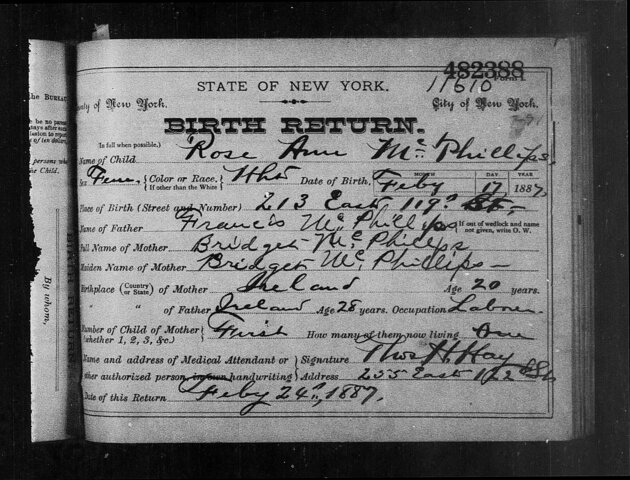 482388
11610
STATE OF NEW YORK.
County of New York. City of New York.
BIRTH RETURN.
In full when possible.
Name of Child Rose Ann McPhillips.
Sex Fem. Color or Race. If other than the White Wht Date of Birth, Feby MONTH 17 DAY 1887, YEAR
Place of Birth (Street and Number) 213 East 119th St.
Name of Father Francis McPhillips If out of wedlock and name not given, write O. W.
Full Name of Mother Bridget McPhillips
Maiden Name of Mother Bridget McPhillips
Birthplace (Country or State) of Mother Ireland Age 20 years.
" " of Father Ireland Age 28 years. Occupation Laborer
Number of Child of Mother (whether 1, 2, 3, &c.) First How many of them now living One
Name and address of Medical Attendant or Signature Thos H. Hay
other authorized person, in own handwriting Address 235 East 122 St
Date of this Return Feby 24th, 1887.
the BUREAU
be no par
of ten dollars,
persons who
the Child.
By whom.